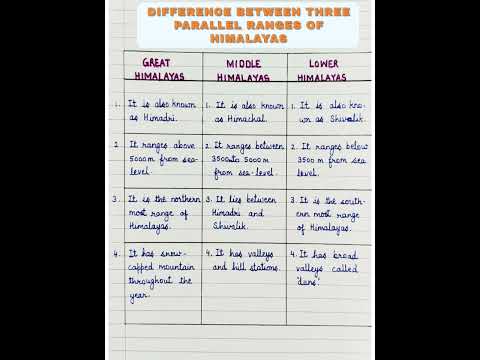 DIFFERENCE BETWEEN THREE
PARALLEL RANGES OF
HIMALAYAS
GREAT
HIMALAYAS
MIDDLE
HIMALAYAS
LOWER
HIMALAYAS
1. It is also known
as Himadri.
1. It is also known
as Himachal.
1. It is also kno-
wn as Shivalik.
2. It ranges above
5000m from sea-
level.
2. It ranges between
3500to 5000m
from sea-level.
2. It ranges below
3500m from sea
level.
3. It is the northern
most range of
Himalayas.
3. It lies between
Himadri and
Shivalik.
3. It is the south-
ern most range
of Himalayas.
4. It has snow-
capped mountain
throughout the
year.
4. It has valleys
and hill stations.
4. It has broad
valleys called
'duns'.